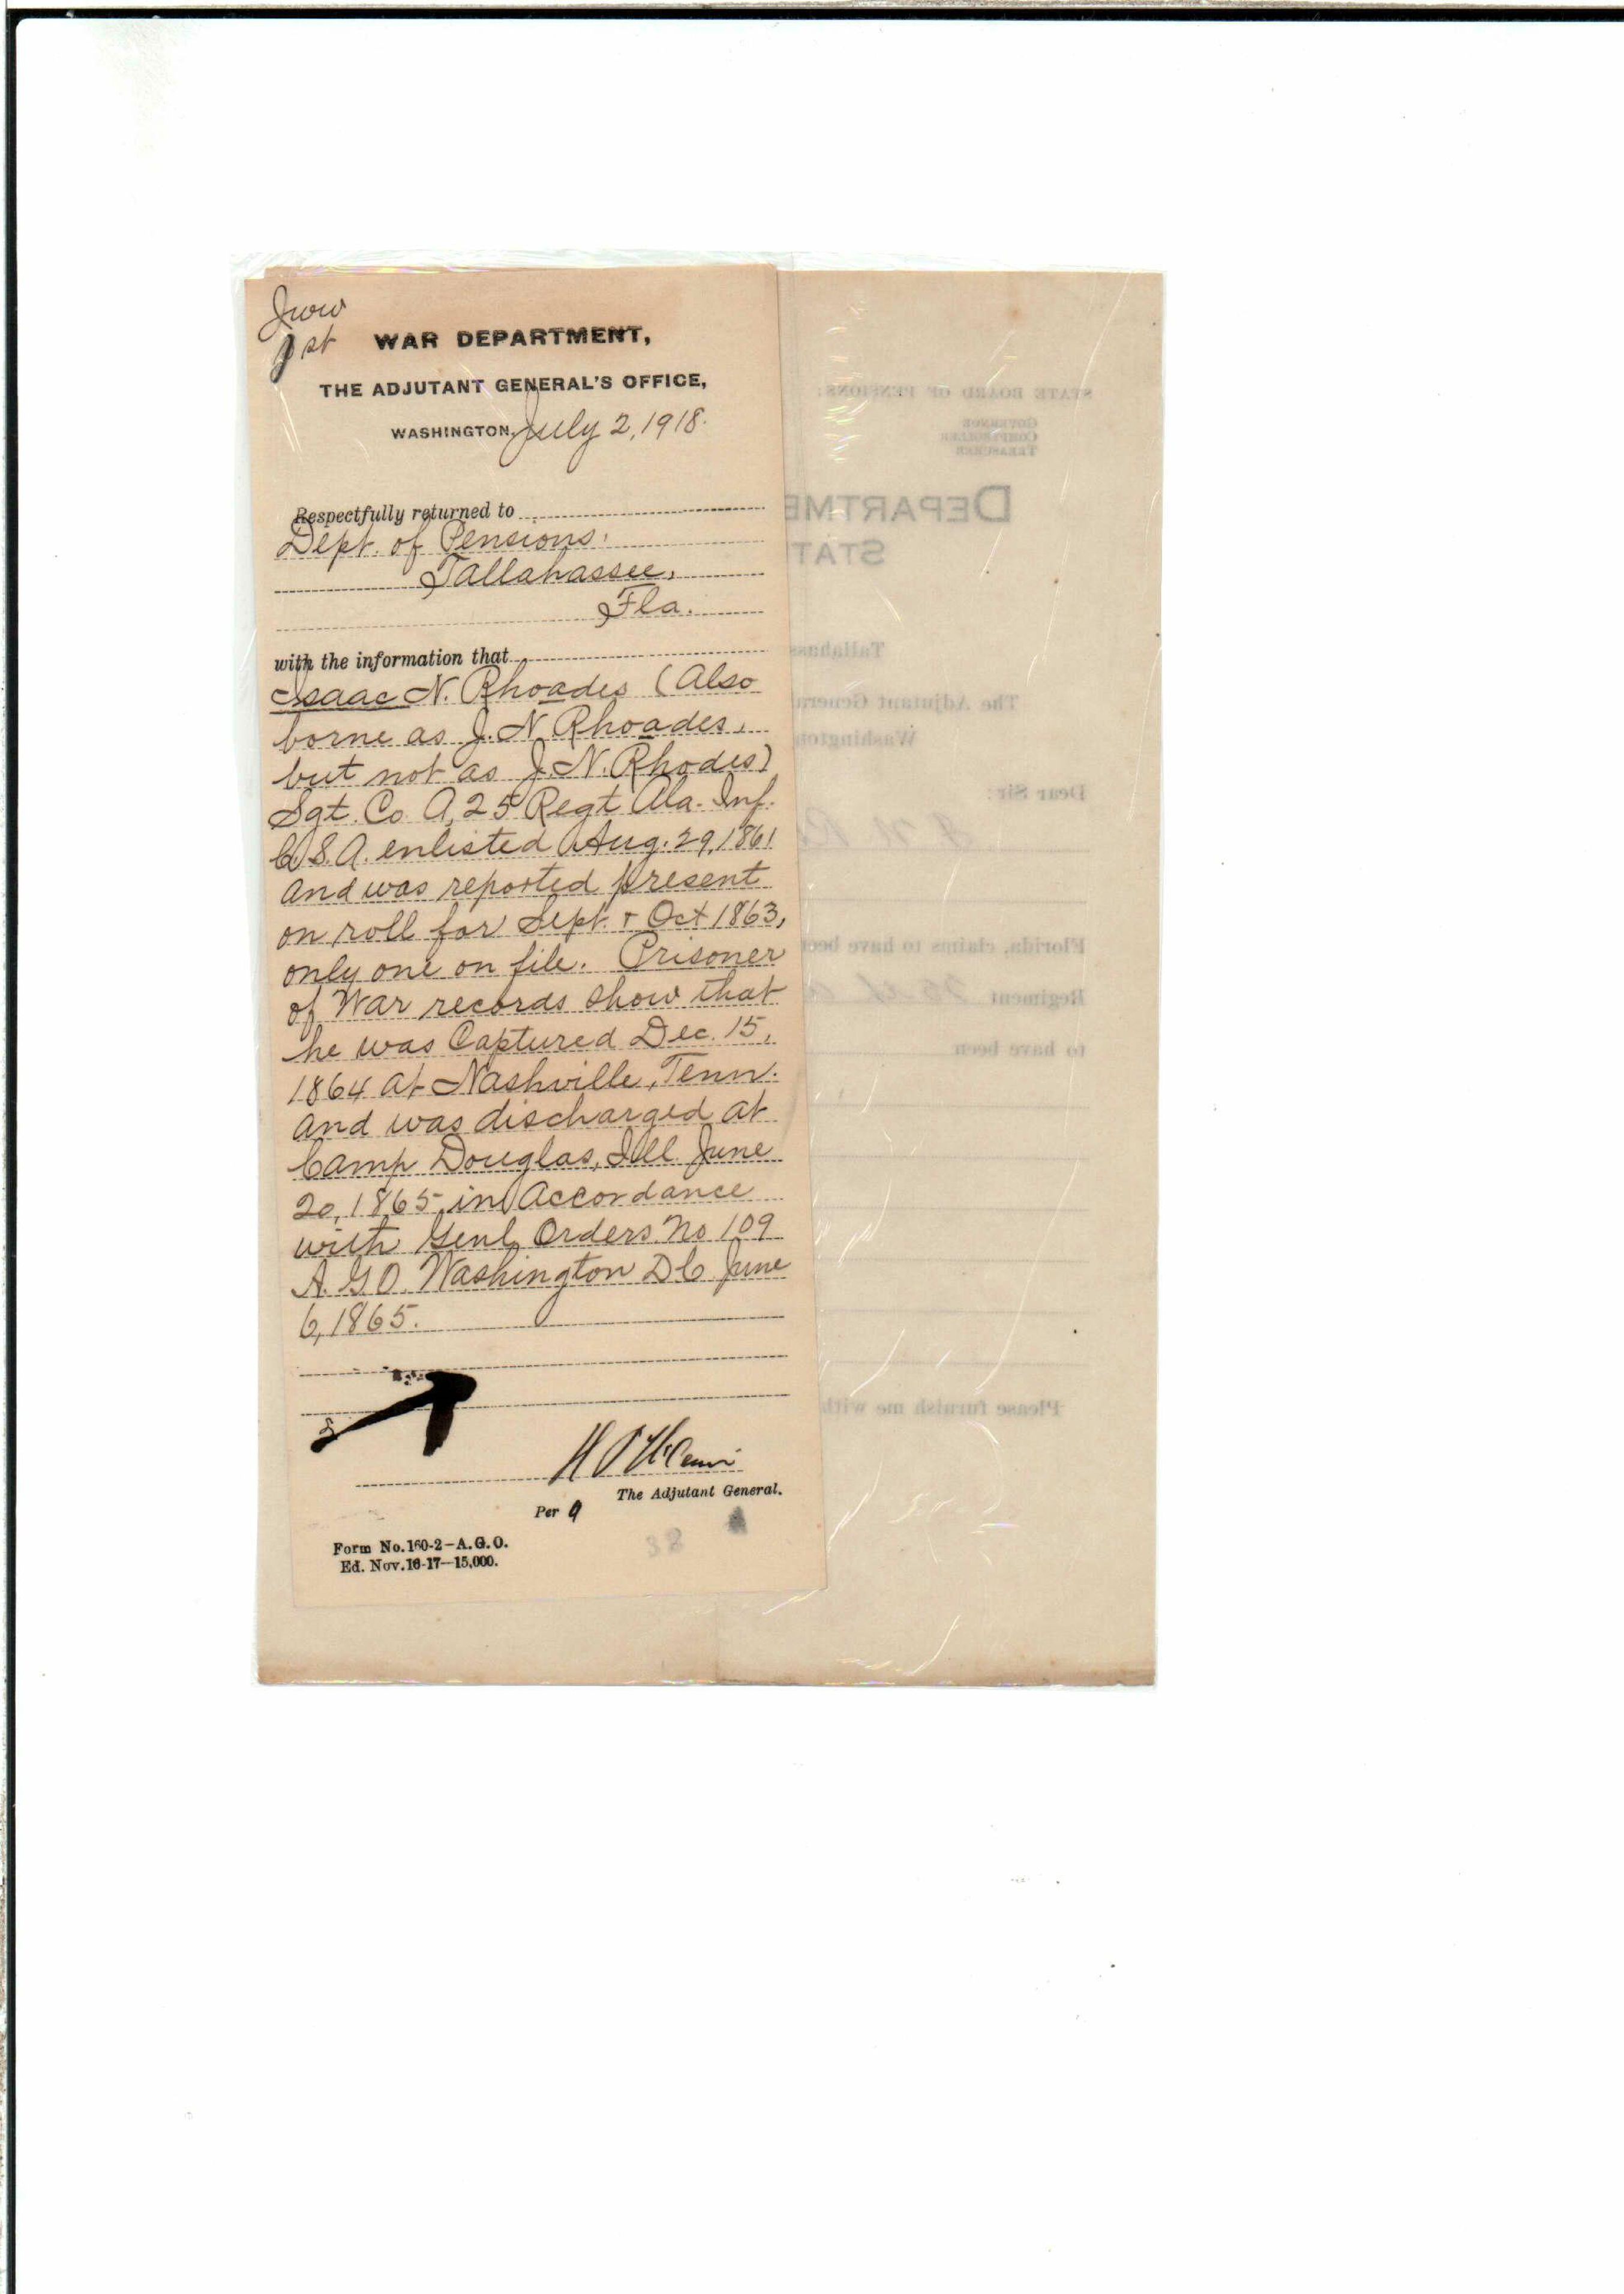 1st
WAR DEPARTMENT,
THE ADJUTANT GENERAL'S OFFICE,
WASHINGTON, July 2, 1918.
Respectfully returned to
Dept. of Pensions,
Tallahassee,
Fla.
with the information that
Isaac N. Rhoades (Also
borne as J. N. Rhoades,
but not as J. N. Rhodes)
Sgt. Co. A, 25 Regt Ala. Inf.
C.S.A. enlisted Aug. 29, 1861
and was reported present
on roll for Sept. + Oct 1863,
only one on file. Prisoner
of War records show that
he was Captured Dec. 15,
1864 at Nashville, Tenn.
and was discharged at
Camp Douglas, Ill. June
20, 1865 in accordance
with Genl Orders No 109
A.G.O. Washington DC June
6, 1865.
The Adjutant General.
Per
Form No. 160-2-A.G.O.
Ed. Nov. 16-17--15,000.
38
STATE BOARD OF PENSIONS:
GOVERNOR
COMPTROLLER
TREASURER
Tallahas
The Adjutant Genera
Washington
Dear Sir:
Florida, claims to have bee
Regiment
to have been
Please furnish me with